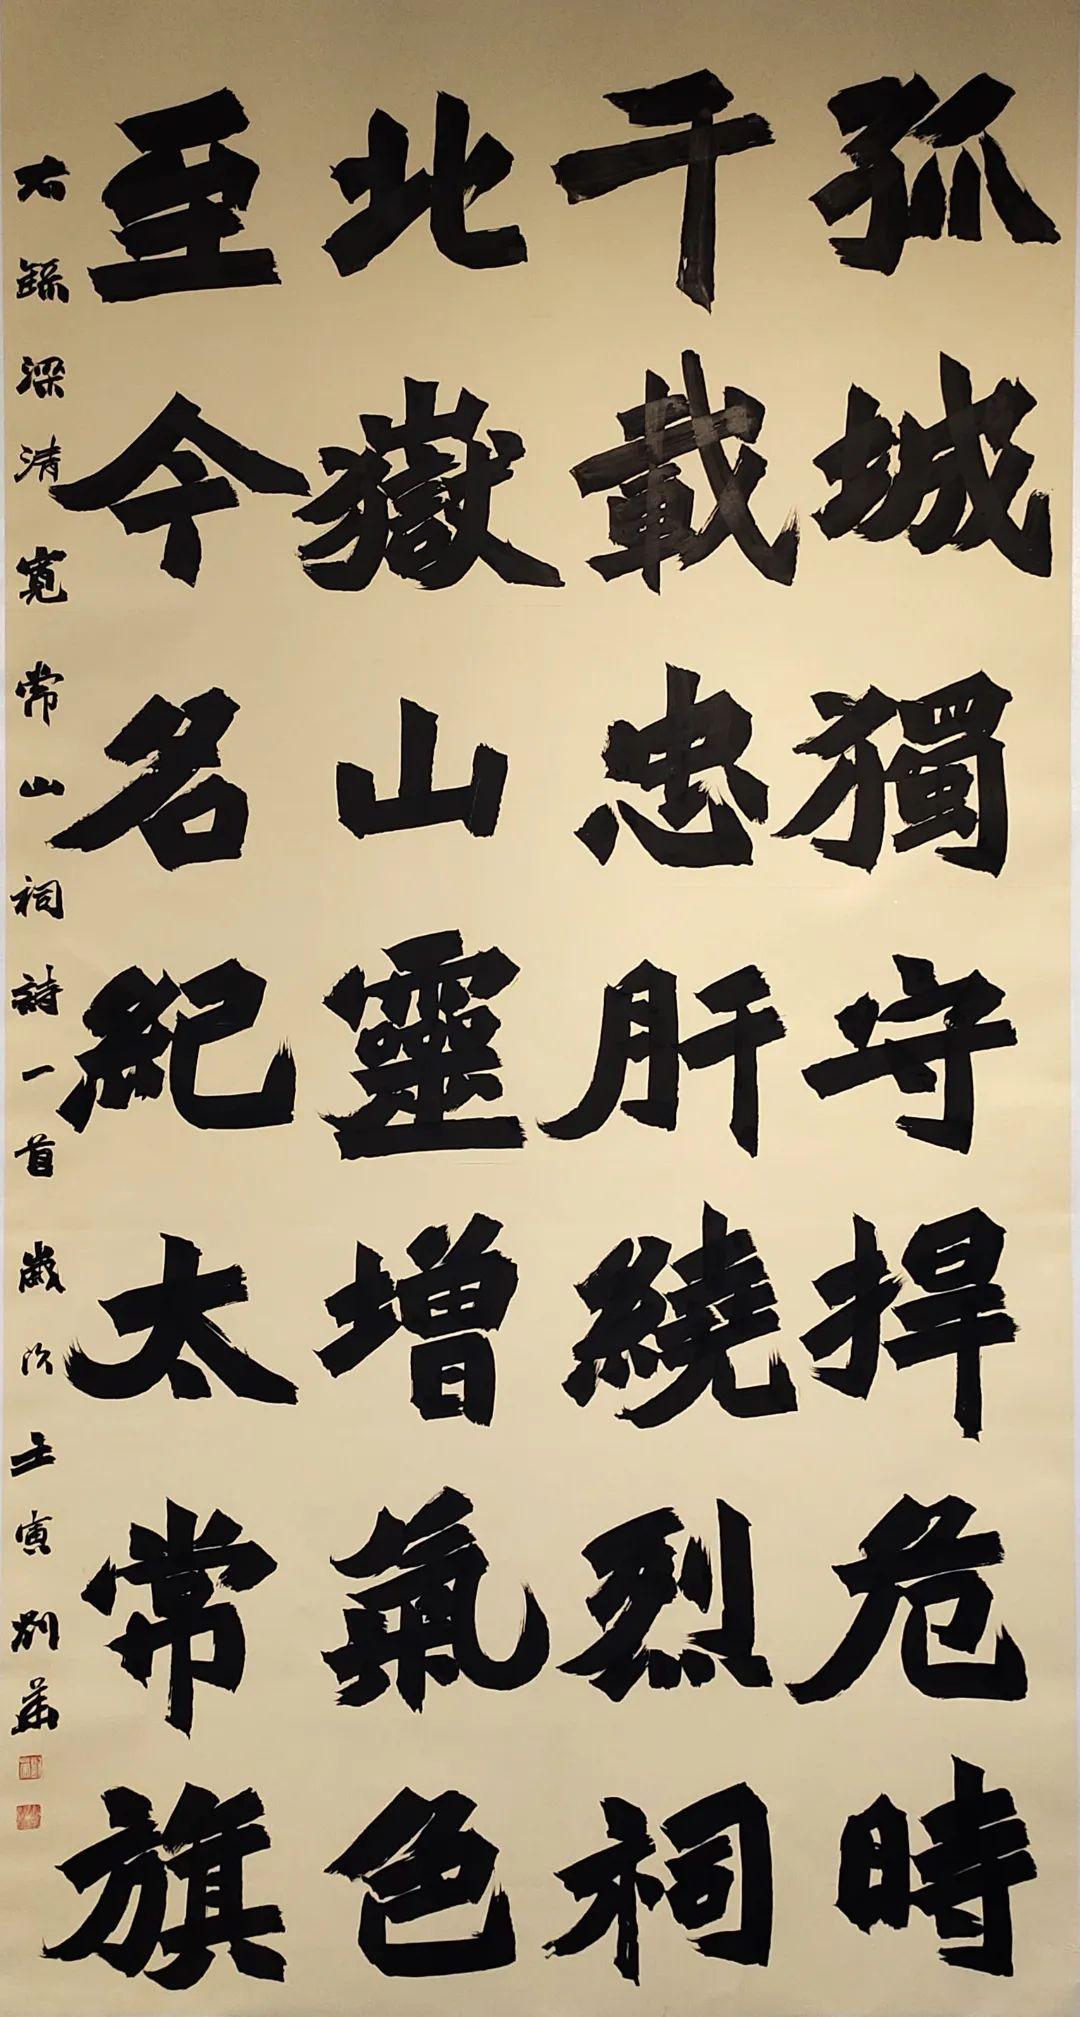 孤城獨守捍危時
千載忠肝繞烈祠
北嶽山靈增氣色
至今名紀太常旗
右錄梁清寬常山祠詩一首歲次壬寅別